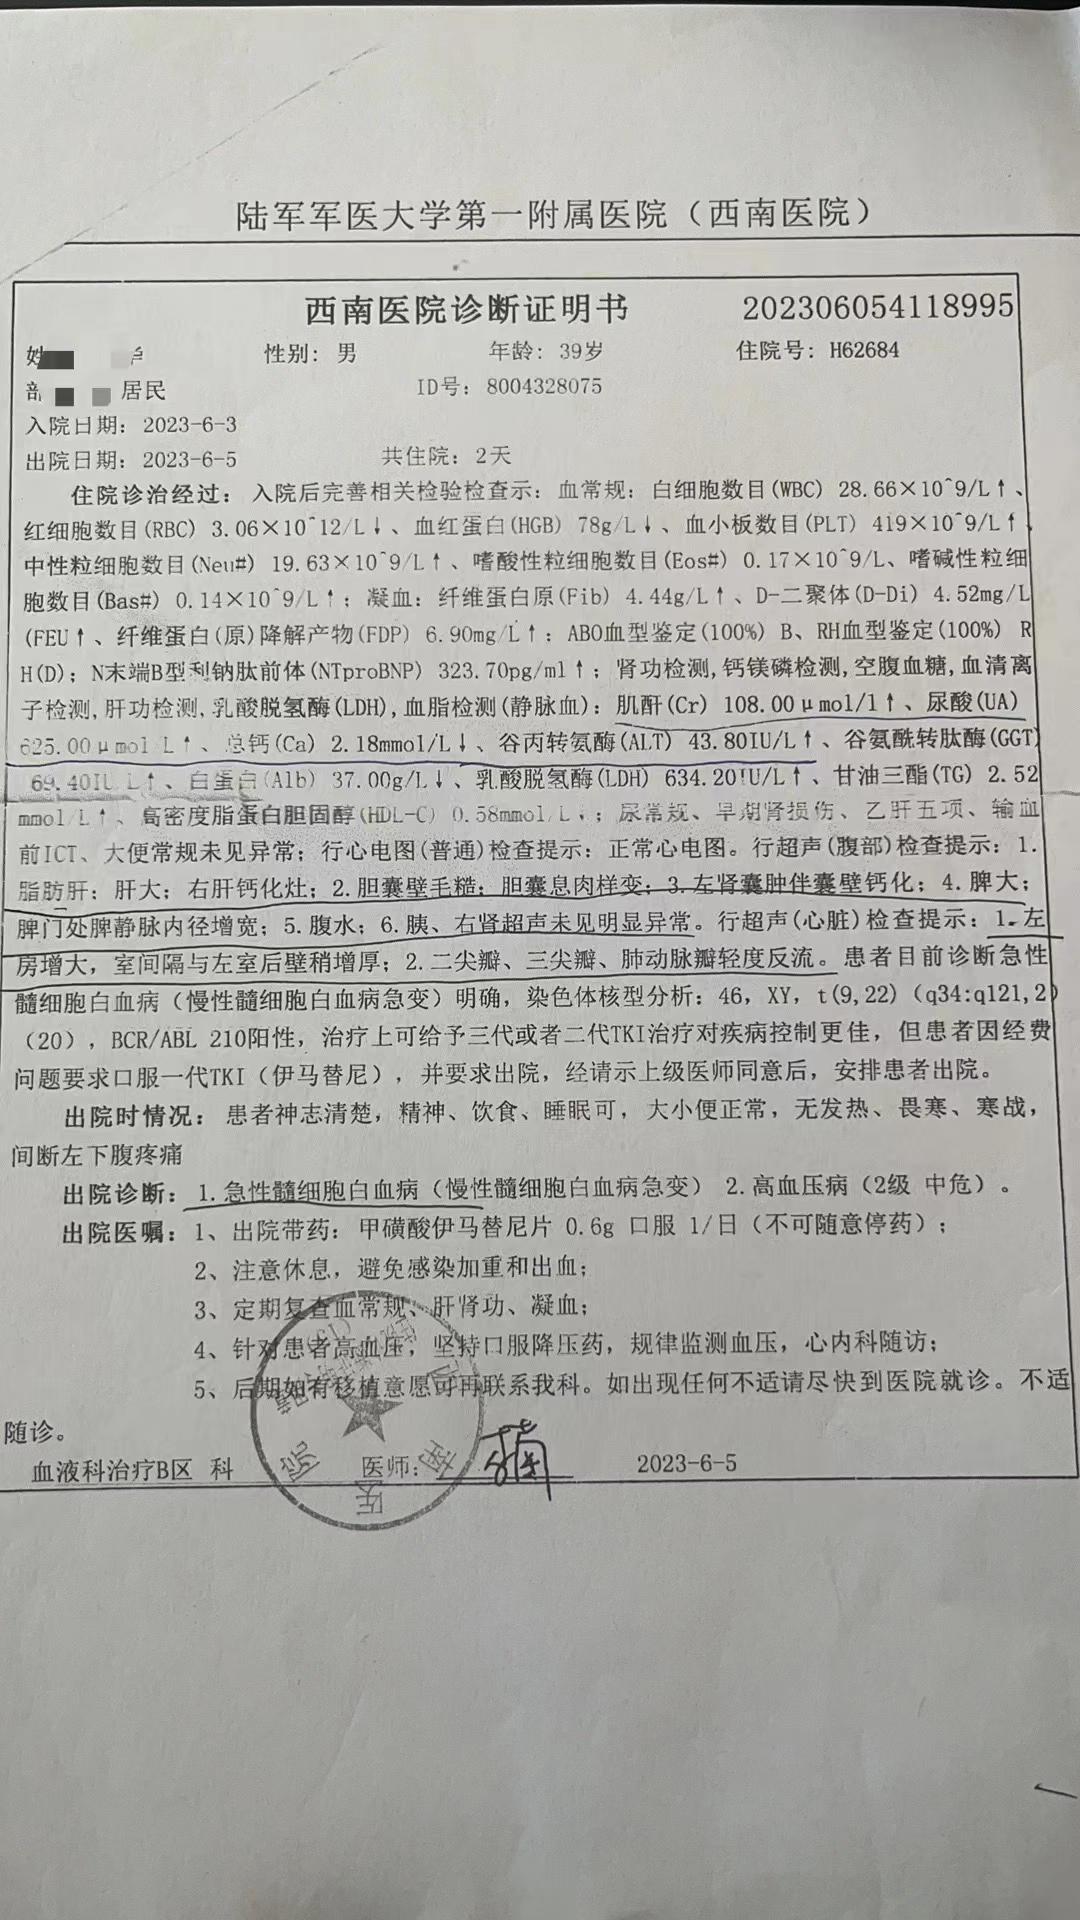 陆军军医大学第一附属医院（西南医院）
西南医院诊断证明书 202306054118995
性别：男 年龄：39岁 住院号：H62684
居民 ID号：8004328075
入院日期：2023-6-3
出院日期：2023-6-5 共住院：2天
住院诊治经过：入院后完善相关检验检查示：血常规：白细胞数目(WBC) 28.66×10^9/L↑、
红细胞数目(RBC) 3.06×10^12/L↓、血红蛋白(HGB) 78g/L↓、血小板数目(PLT) 419×10^9/L↑
中性粒细胞数目(Neu#) 19.63×10^9/L↑、嗜酸性粒细胞数目(Eos#) 0.17×10^9/L、嗜碱性粒细
胞数目(Bas#) 0.14×10^9/L↑；凝血：纤维蛋白原(Fib) 4.44g/L↑、D-二聚体(D-Di) 4.52mg/L
(FEU↑、纤维蛋白(原)降解产物(FDP) 6.90mg/L↑：ABO血型鉴定(100%) B、RH血型鉴定(100%) R
H(D)；N末端B型利钠肽前体(NTproBNP) 323.70pg/ml↑；肾功检测,钙镁磷检测,空腹血糖,血清离
子检测,肝功检测,乳酸脱氢酶(LDH),血脂检测(静脉血)：肌酐(Cr) 108.00μmol/l↑、尿酸(UA)
625.00μmol L↑、总钙(Ca) 2.18mmol/L↓、谷丙转氨酶(ALT) 43.80IU/L↑、谷氨酰转肽酶(GGT)
69.40IU L↑、白蛋白(Alb) 37.00g/L↓、乳酸脱氢酶(LDH) 634.20IU/L↑、甘油三酯(TG) 2.52
mmol/L↑、高密度脂蛋白胆固醇(HDL-C) 0.58mmol/L↓；尿常规、早期肾损伤、乙肝五项、输血
前ICT、大便常规未见异常；行心电图(普通)检查提示：正常心电图。行超声(腹部)检查提示：1.
脂肪肝；肝大；右肝钙化灶；2.胆囊壁毛糙；胆囊息肉样变；3.左肾囊肿伴囊壁钙化；4.脾大；
脾门处脾静脉内径增宽；5.腹水；6.胰、右肾超声未见明显异常。行超声(心脏)检查提示：1.左
房增大，室间隔与左室后壁稍增厚；2.二尖瓣、三尖瓣、肺动脉瓣轻度反流。患者目前诊断急性
髓细胞白血病（慢性髓细胞白血病急变）明确，染色体核型分析：46，XY，t(9,22)（q34:q121,2）
（20），BCR/ABL 210阳性，治疗上可给予三代或者二代TKI治疗对疾病控制更佳，但患者因经费
问题要求口服一代TKI（伊马替尼），并要求出院，经请示上级医师同意后，安排患者出院。
出院时情况：患者神志清楚，精神、饮食、睡眠可，大小便正常，无发热、畏寒、寒战，
间断左下腹疼痛
出院诊断：1.急性髓细胞白血病（慢性髓细胞白血病急变） 2.高血压病（2级 中危）。
出院医嘱：1、出院带药：甲磺酸伊马替尼片 0.6g 口服 1/日（不可随意停药）；
2、注意休息，避免感染加重和出血；
3、定期复查血常规、肝肾功、凝血；
4、针对患者高血压，坚持口服降压药，规律监测血压，心内科随访；
5、后期如有移植意愿可再联系我科。如出现任何不适请尽快到医院就诊。不适
随诊。
血液科治疗B区 科 医师： 2023-6-5